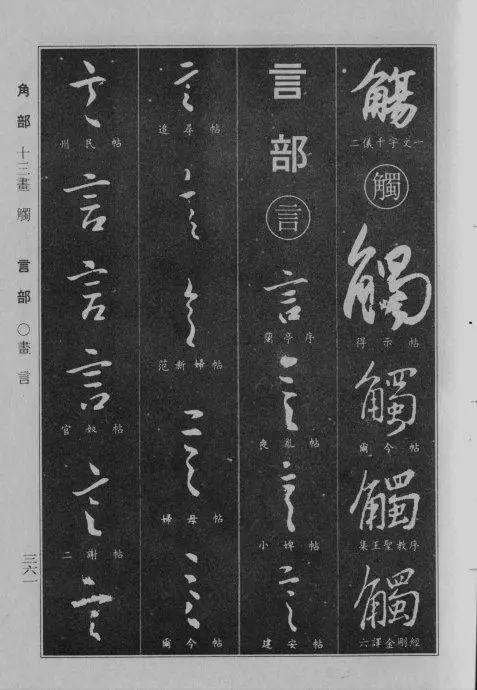 觴
二儀千字文一
觸
觸
得示帖
觸
爾今帖
觸
集王聖教序
觸
六譯金剛經
言部
言
言
蘭亭序
言
喪亂帖
言
小婢帖
言
建安帖
言
追尋帖
言
言
范新婦帖
言
婦母帖
言
爾今帖
言
州民帖
言
言
言
官奴帖
言
二謝帖
言
角部 十三畫 觸 言部 〇畫 言
三六一